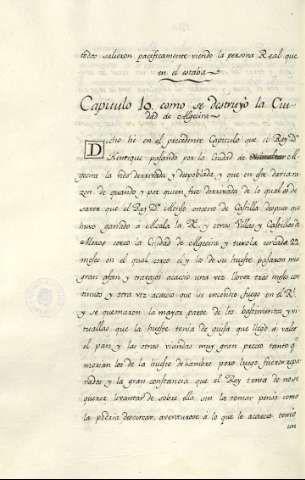 todos salieron pacificamente viendo la persona Real que
en el estaba
Capitulo 10 como se destruyò la Ciu-
dad de Algecira
Dicho hè en el precedente Capitulo que el Rey D.
Henrique passando por la Ciudad de Al-
gecira la vido derrivada y despoblada, y que en esto daria ra-
zon de quando, y por quien fue derrivada de lo qual es de
saver que el Rey D. Alonso onceno de Castilla despues que
huvo ganado à Alcala la R. y otras Villas y Castillos de
Moros cerco la Ciudad de Algecira y tuvola cercada 22
meses en el qual cerco el y los de su hueste passaron mui
gran afan y travajos acaecio una vez llover tres meses con-
tinuos y otra vez acaecio que se encendio fuego en el R.
y se quemaron la mayor parte de los bastimentos y vi-
tuallas que la hueste tenia de guisa que llegò à valer
el pan y las otras viandas muy gran precio tanto q
morian los de la hueste de hambre pero luego fueron repa-
rados y la gran constancia que el Rey tenia de no se
querer levantar de sobre ella sin la tomar penso como
la podria descercar, aventurose à lo que le acaecio, tomo
con